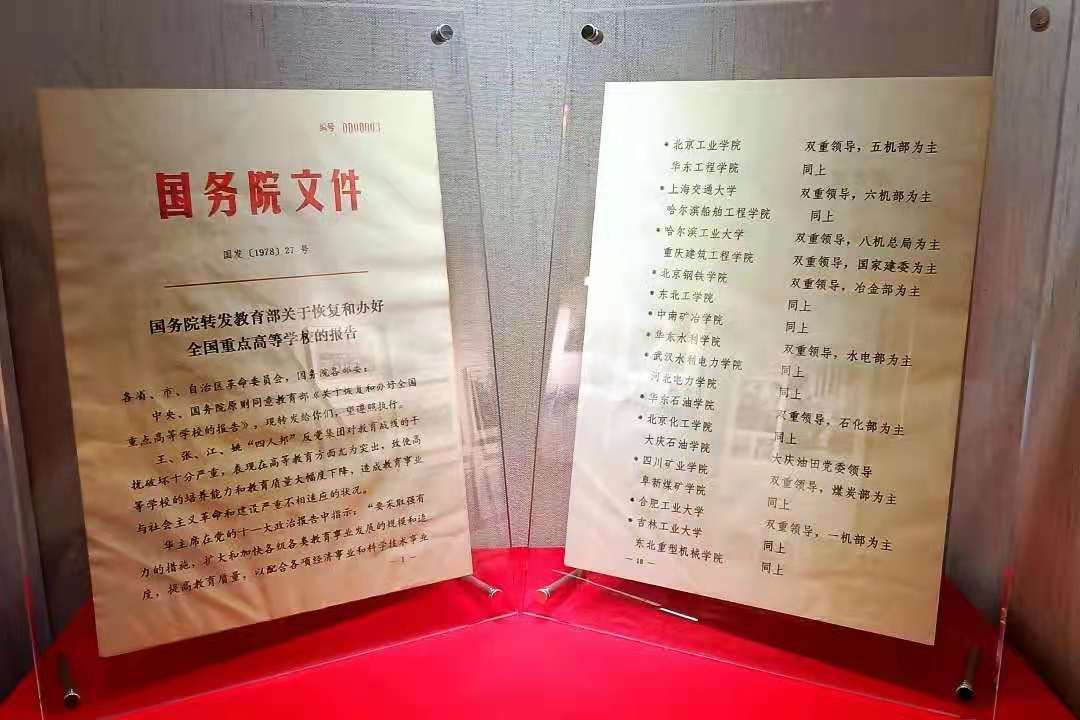 编号 0000003
国务院文件
国发〔1978〕27 号
国务院转发教育部关于恢复和办好
全国重点高等学校的报告
各省、市、自治区革命委员会，国务院各部委：
中央、国务院原则同意教育部《关于恢复和办好全国
重点高等学校的报告》，现转发给你们，望遵照执行。
王、张、江、姚“四人邦”反党集团对教育战线的干
扰破坏十分严重，表现在高等教育方面尤为突出，致使高
等学校的培养能力和教育质量大幅度下降，造成教育事业
与社会主义革命和建设严重不相适应的状况。
华主席在党的十一大政治报告中指示：“要采取强有
力的措施，扩大和加快各级各类教育事业发展的规模和速
度，提高教育质量，以配合各项经济事业和科学技术事业
— 1 —
• 北京工业学院 双重领导，五机部为主
华东工程学院 同上
• 上海交通大学 双重领导，六机部为主
哈尔滨船舶工程学院 同上
• 哈尔滨工业大学 双重领导，八机总局为主
重庆建筑工程学院 双重领导，国家建委为主
• 北京钢铁学院 双重领导，冶金部为主
• 东北工学院 同上
• 中南矿冶学院 同上
• 华东水利学院 双重领导，水电部为主
• 武汉水利电力学院 同上
河北电力学院 同上
• 华东石油学院 双重领导，石化部为主
• 北京化工学院 同上
大庆石油学院 大庆油田党委领导
• 四川矿业学院 双重领导，煤炭部为主
阜新煤矿学院 同上
• 合肥工业大学 双重领导，一机部为主
• 吉林工业大学 同上
东北重型机械学院 同上
— 10 —